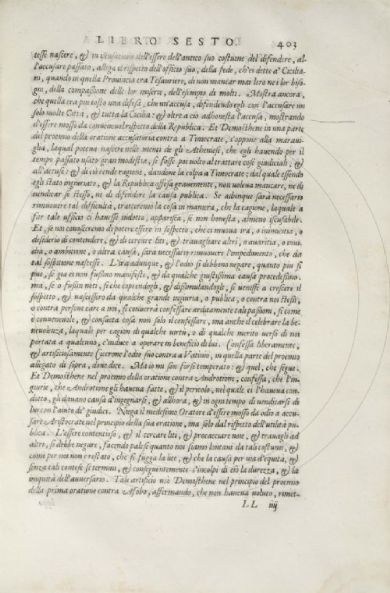 LIBRO SESTO 403
tesse nascere, & in escusatione dell'essere dell'antico suo costume del difendere, al-
l'accusare passato, allega il rispetto dell'officio suo, della fede, ch'ei dette a' Cicilia
ni, quando in quella Provincia era Tesauriere, di non mancar mai loro nei lor biso-
gni, della compassione delle lor miserie, dell'esempio di molti. Mostra ancora,
che quella era piu tosto una difesa, che un'accusa, difendendo egli con l'accusare un
solo molte Città, & tutta la Cicilia: & oltre a ciò adhonesta l'accusa, mostrando
d'essere mosso da conveneuol rispetto della Republica. Et Demosthene in una parte
del proemio della oratione accusatoria contra a Timocrate, s'oppone alla marauì-
glia, laqual potena nascere nelle menti de gli Atheniesi, che egli hauendo per il
tempo passato usato gran modestia, si fosse poi volto al trattare cose giudiciali, &
all'accuse: & di ciò rende ragione, dandone la colpa a Timocrate: del quale essendo
egli stato ingiuriato, & la Republica offesa grauemente, non voleua mancare, ne di
uendicar se stesso, ne di difendere la causa publica. Se adunque sarà necessario
rimouere tal difficultà, tratteremo la cosa in maniera, che la cagione, laquale a
far tale ufficio ci hauesse indotto, apparisca, se non honesta, almeno iscusabile.
Et, se noi conosceremo di poter essere in sospetto, che ci muoua ira, o inimicitia, o
desiderio di contendere, & di cercare liti, & trauagliare altri, o auaritia, o inui-
dia, o ambitione, o altra causa, sarà necessario rimuouere l'impedimento, che da
tal sospitione nascesse. L'ira adunque, & l'odio si debbono negare, quanto piu si
puo, se già ei non fussino manifesti, & da qualche giustissima causa procedessino.
ma, se o fussin noti, si che coprendogli, & dissimulandogli, si uenisse a crescere il
sospetto, & nascessero da qualche grande ingiuria, o publica, o contra noi stessi,
o contra persone care a noi, si conuerrà confessare arditamente tali passioni, si come
è conueneuole, & consueta cosa non solo il confessare, ma anche il celebrare la be-
niuolenza, laquale per cagion di qualche uirtù, o di qualche merito uerso di noi
portata a qualcuno, c'induce a operare in beneficio di lui. Confessa liberamente,
& artificiosamente Cicerone l'odio suo contra a Vatinio, in quella parte del proemio
allegato di sopra, doue dice. Ma io mi son forse temperato: & quel, che segue.
Et Demosthene nel proemio della oratione contra Androtione, confessa, che l'in-
giuria, che Androtione gli haueua fatto, & il pericolo, nel quale ei l'haueua con-
dotto, gli donano causa d'ingegnarsi, & allhora, & in ogni tempo di uendicarsi di
lui con l'aiuto de' giudici. Nega il medesimo Oratore d'essere mosso da odio a accu-
sare Aristocrate nel principio della sua oratione, ma solo dal rispetto dell'utilità pu
blica. L'essere contentioso, & il cercare liti, & procacciare noie, & trauagli ad
altri, si debbe negare, facendo palese quanto noi siamo lontani da tali costumi, &
come per noi non è restato, che si fugga la lite, & che la causa per uia d'equità, &
senza tali contese si termini, & conseguentemente s'incolpi di ciò la durezza, & la
iniquità dell'auuersario. Tale artificio usa Demosthene nel principio del proemio
della prima oratione contra Afobo, affermando, che non haueua uoluto, rimet-
LL iij